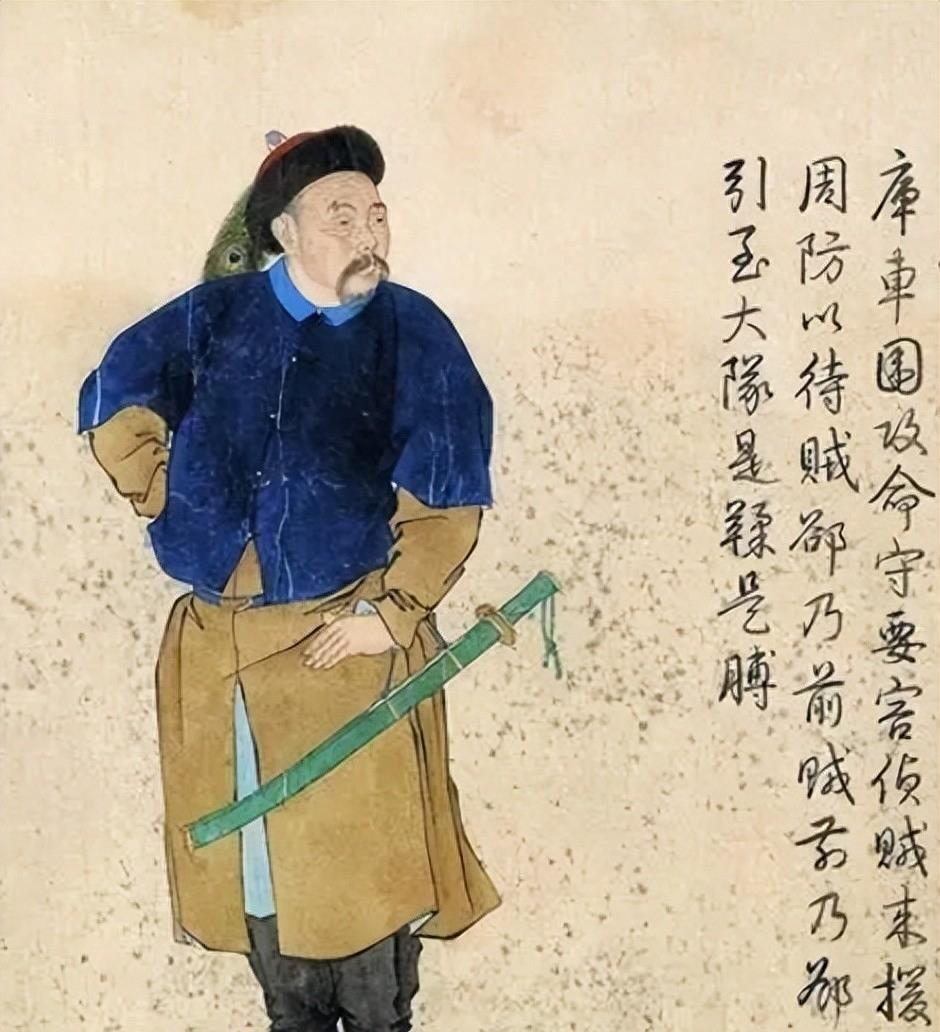 庫車圍攻命守要害偵賊来援
周防以待賊郤乃前賊前乃郤
引至大隊是鞣是膊